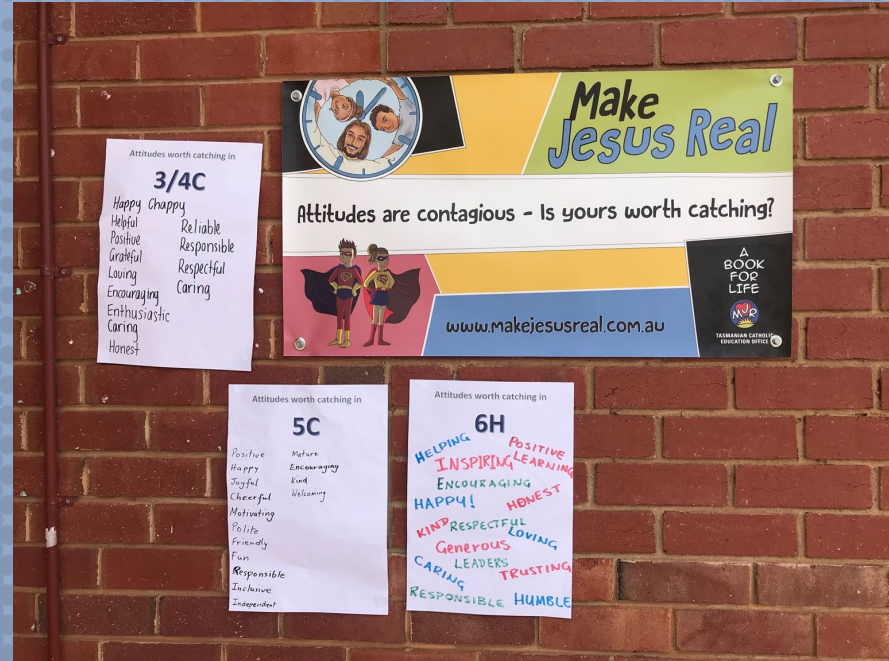 Make
Jesus Real
Attitudes are contagious - Is yours worth catching?
A
BOOK
FOR
LIFE
MJR
TASMANIAN CATHOLIC
EDUCATION OFFICE
www.makejesusreal.com.au
Attitudes worth catching in
3/4C
Happy Chappy
Helpful
Positive
Grateful
Loving
Encouraging
Enthusiastic
Caring
Honest
Reliable
Responsible
Respectful
Caring
Attitudes worth catching in
5C
Positive
Happy
Joyful
Cheerful
Motivating
Polite
Friendly
Fun
Responsible
Inclusive
Independent
Mature
Encouraging
Kind
Welcoming
Attitudes worth catching in
6H
HELPING
POSITIVE
INSPIRING
LEARNING
ENCOURAGING
HAPPY!
HONEST
KIND
RESPECTFUL
LOVING
Generous
LEADERS
CARING
TRUSTING
RESPONSIBLE
HUMBLE